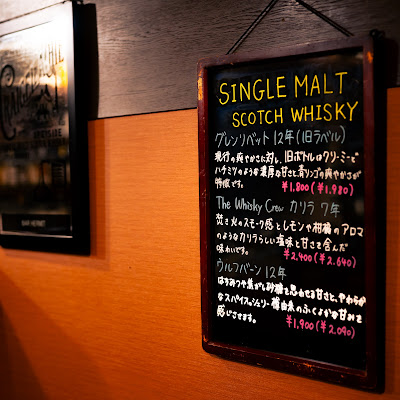 SINGLE MALT
SCOTCH WHISKY
グレンリベット 12年(旧ラベル)
現行の爽やかさに対し、旧ボトルはクリーミーで
ハチミツのような濃厚な甘さと青リンゴの爽やかさが
特徴です。
¥1,800(¥1,980)
The Whisky Crew カリラ 7年
焚き火のスモーク感とレモンや柑橘のアロマ
のようなカリラらしい塩味と甘さを含んだ
味わいです。
¥2,400(¥2,640)
ウルフバーン 12年
はちみつや焦がし砂糖を思わせる甘さと、やわらか
なスパイス。シェリー樽由来のふくよかな甘みを
感じさせます。
¥1,900(¥2,090)
BAR HERMIT